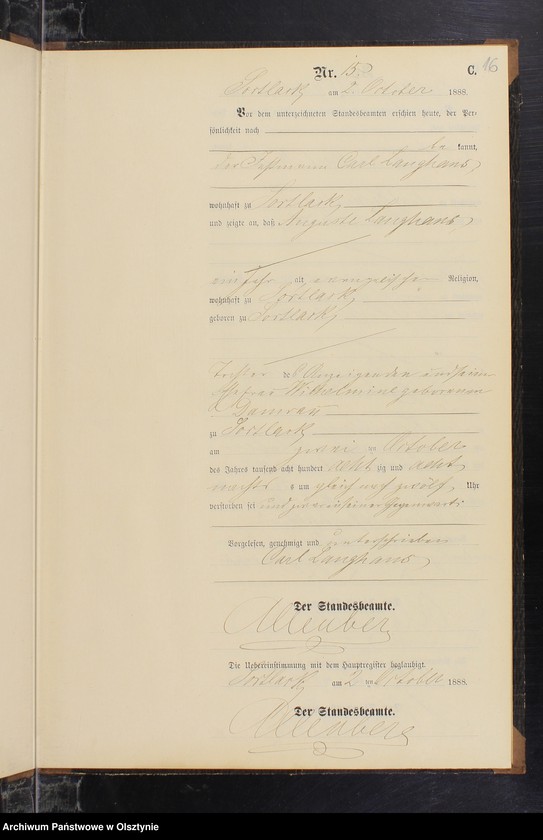 Nr. 15
C. 16
Sortlack am 2. October 1888.
Vor dem unterzeichneten Standesbeamten erschien heute, der Per-
sönlichkeit nach
be kannt,
der Carl Langhans,
wohnhaft zu Sortlack,
und zeigte an, daß Auguste Langhans,
ein Jahr alt evangelischer Religion,
wohnhaft zu Sortlack,
geboren zu Sortlack,
Tochter des Anzeigenden und seiner
Ehefrau Wilhelmine geborenen
Damrau
zu Sortlack
am zwei ten October
des Jahres tausend acht hundert acht zig und acht
nachts um gleich nach zwölf Uhr
verstorben sei und zwar in seiner Gegenwart.
Vorgelesen, genehmigt und unterschrieben
Carl Langhans,
Der Standesbeamte.
Die Uebereinstimmung mit dem Hauptregister beglaubigt.
Sortlack, am 2 ten October 1888.
Der Standesbeamte.
Archiwum Państwowe w Olsztynie